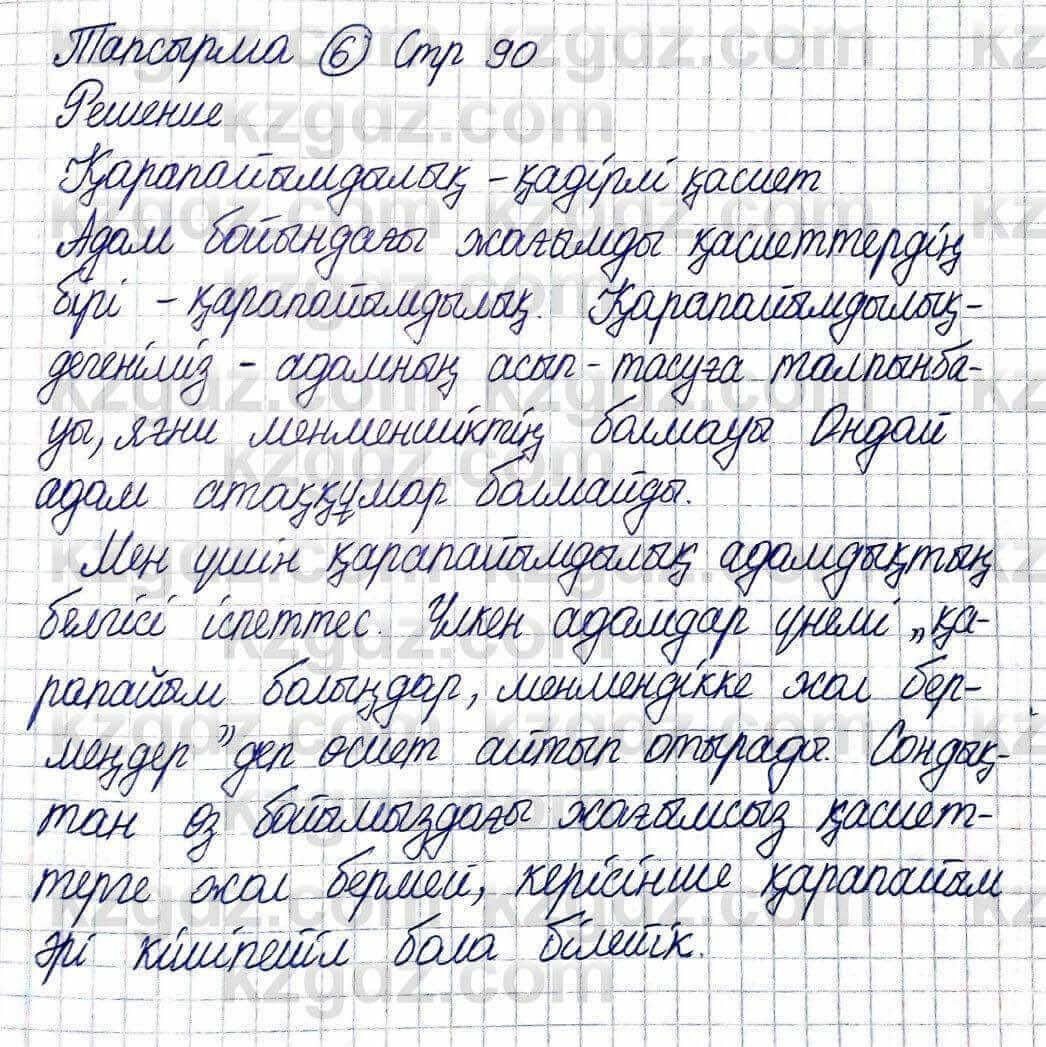 Тапсырма 6 Стр 90
Решение
Қарапайымдылық - қадірлі қасиет
Адам бойындағы жағымды қасиеттердің
бірі - қарапайымдылық. Қарапайымдылық-
дегеніміз - адамның асып-тасуға талпынба-
уы, яғни менменшіктің болмауы Ондай
адам атаққұмар болмайды.
Мен үшін қарапайымдалық адамдықтың
белгісі іспеттес. Үлкен адамдар үнемі „қа-
рапайым болыңдар, менмендікке жол бер-
меңдер" деп өсиет айтып отырады. Сондық-
тан өз бойымыздағы жағымсыз қасиет-
терге жол бермей, керісінше қарапайым
әрі кішіпейіл бола білейік.
kzgdz.com